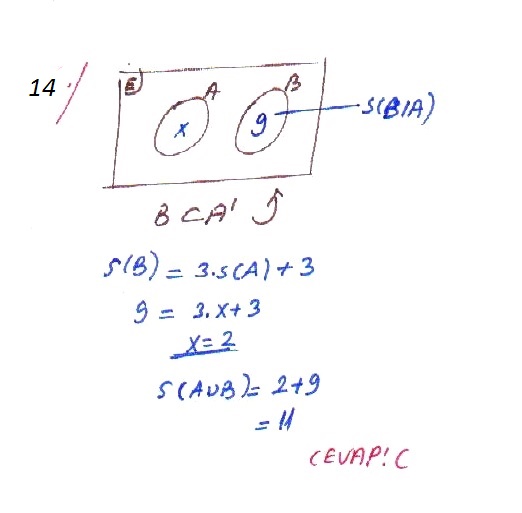 14
E A B
x 9 S(B/A)
B ⊂ A'
S(B) = 3.s(A) + 3
9 = 3.x + 3
x = 2
S(AUB) = 2+9
= 11
CEVAP! C